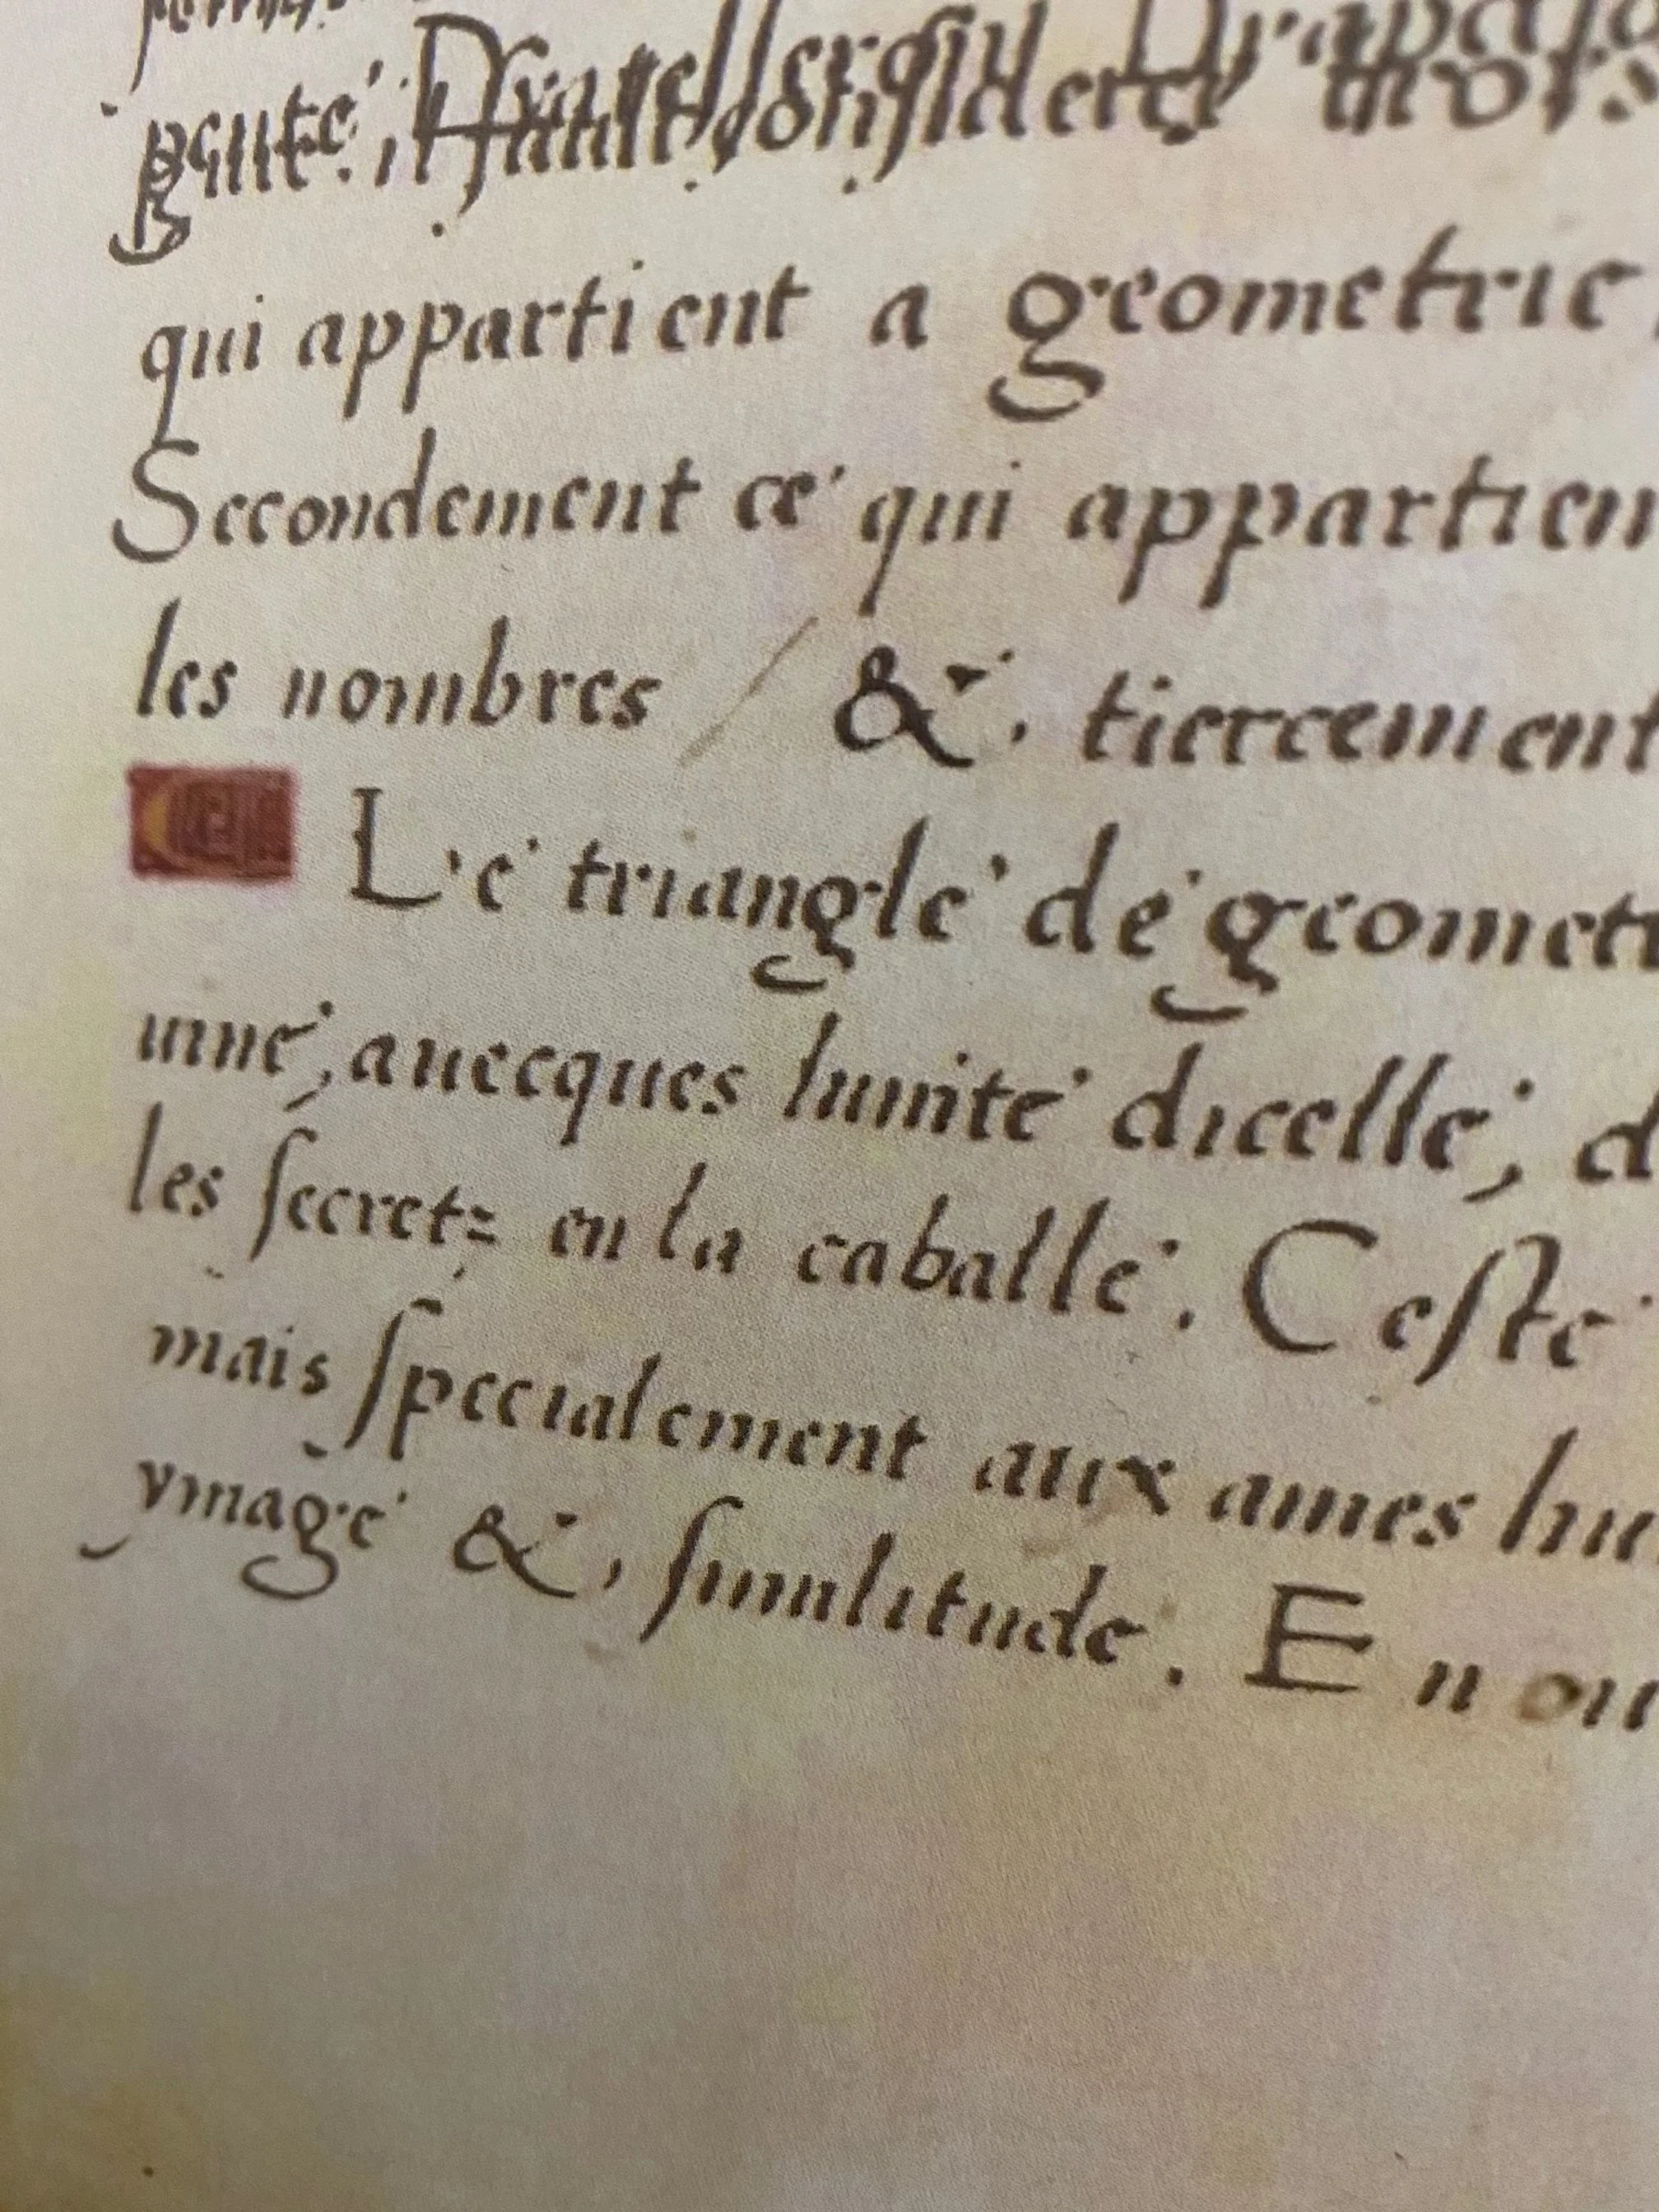 qui appartient a geometrie,
Secondement ce qui appartien
les nombres / &, tiercement
Le triangle de geomet
uine, auecques lunite dicelle, d
les ſecretz en la caballe. Ceſte
mais ſpecialement aux ames hu
ymage &, ſimilitude. En ou